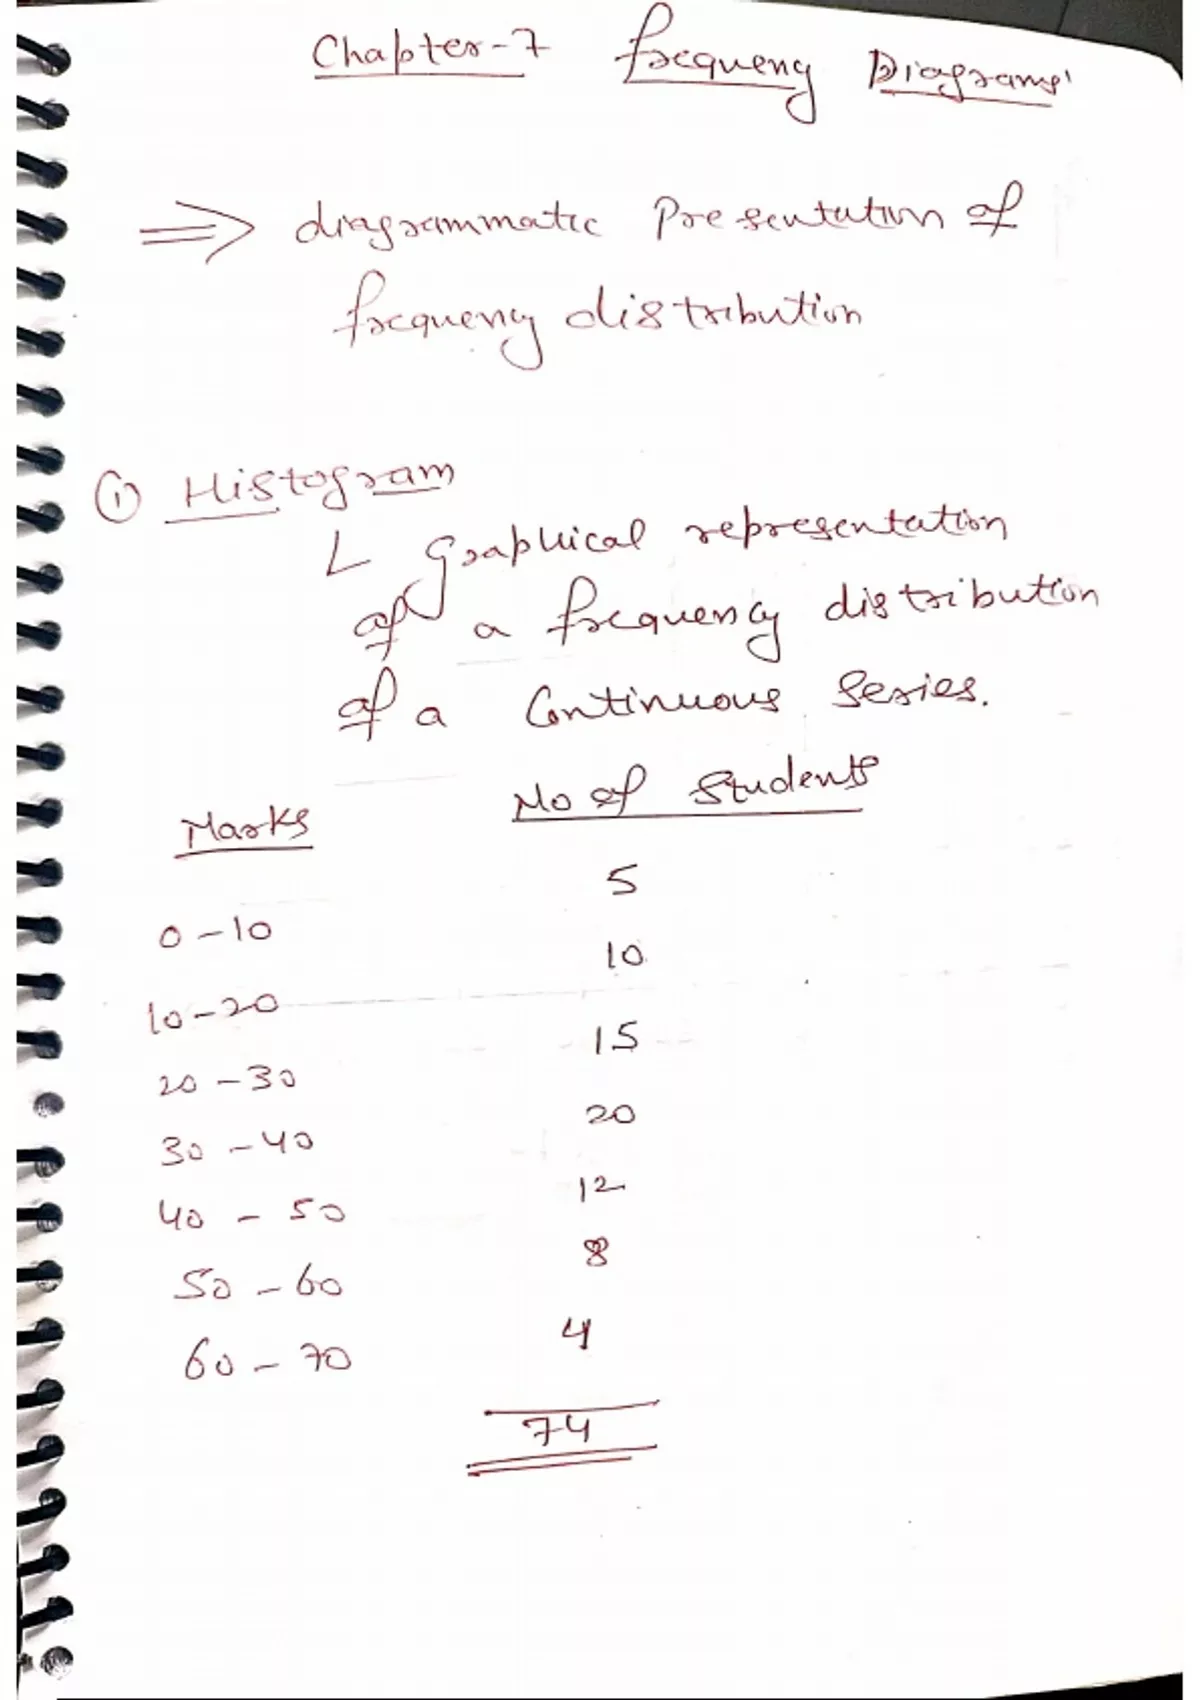 Chapter-7 frequency Diagrams'
⇒ diagrammatic Presentation of
frequency distribution
① Histogram
L Graphical representation
of a frequency distribution
of a Continuous Series.
Marks No of Students
0-10 5
10-20 10
20-30 15
30-40 20
40-50 12
50-60 8
60-70 4
74